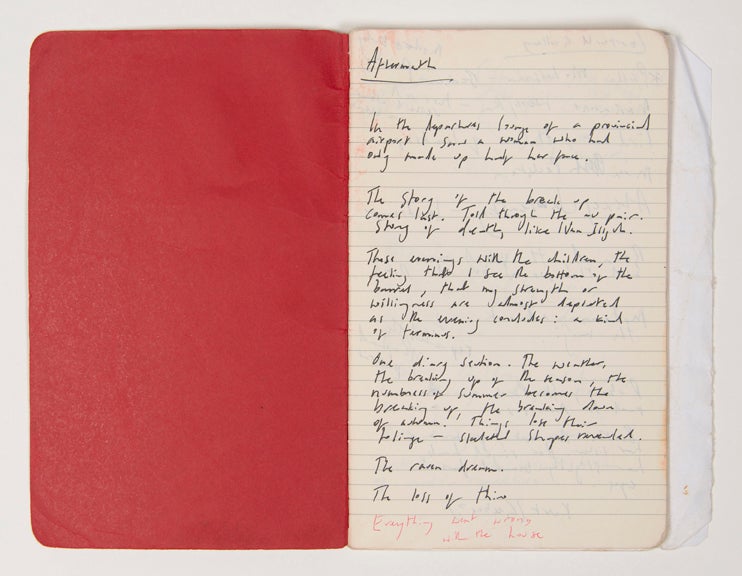 Aftermath
In the departures lounge of a provincial
airport I saw a woman who had
only made up half her face.
The story of the break up
comes last. Told through the au pair.
Story of death, like Ivan Ilyich.
Those evenings with the children, the
feeling that I see the bottom of the
barrel, that my strength or
willingness are almost depleted
as the evening concludes: a kind
of terminus.
One diary section. The weather,
the breaking up of the season, the
numbness of summer becomes the
breaking up, the breaking down
of autumn. Things lose their
foliage – skeletal shapes revealed.
The raven dream.
The loss of
Everything went wrong
with the house